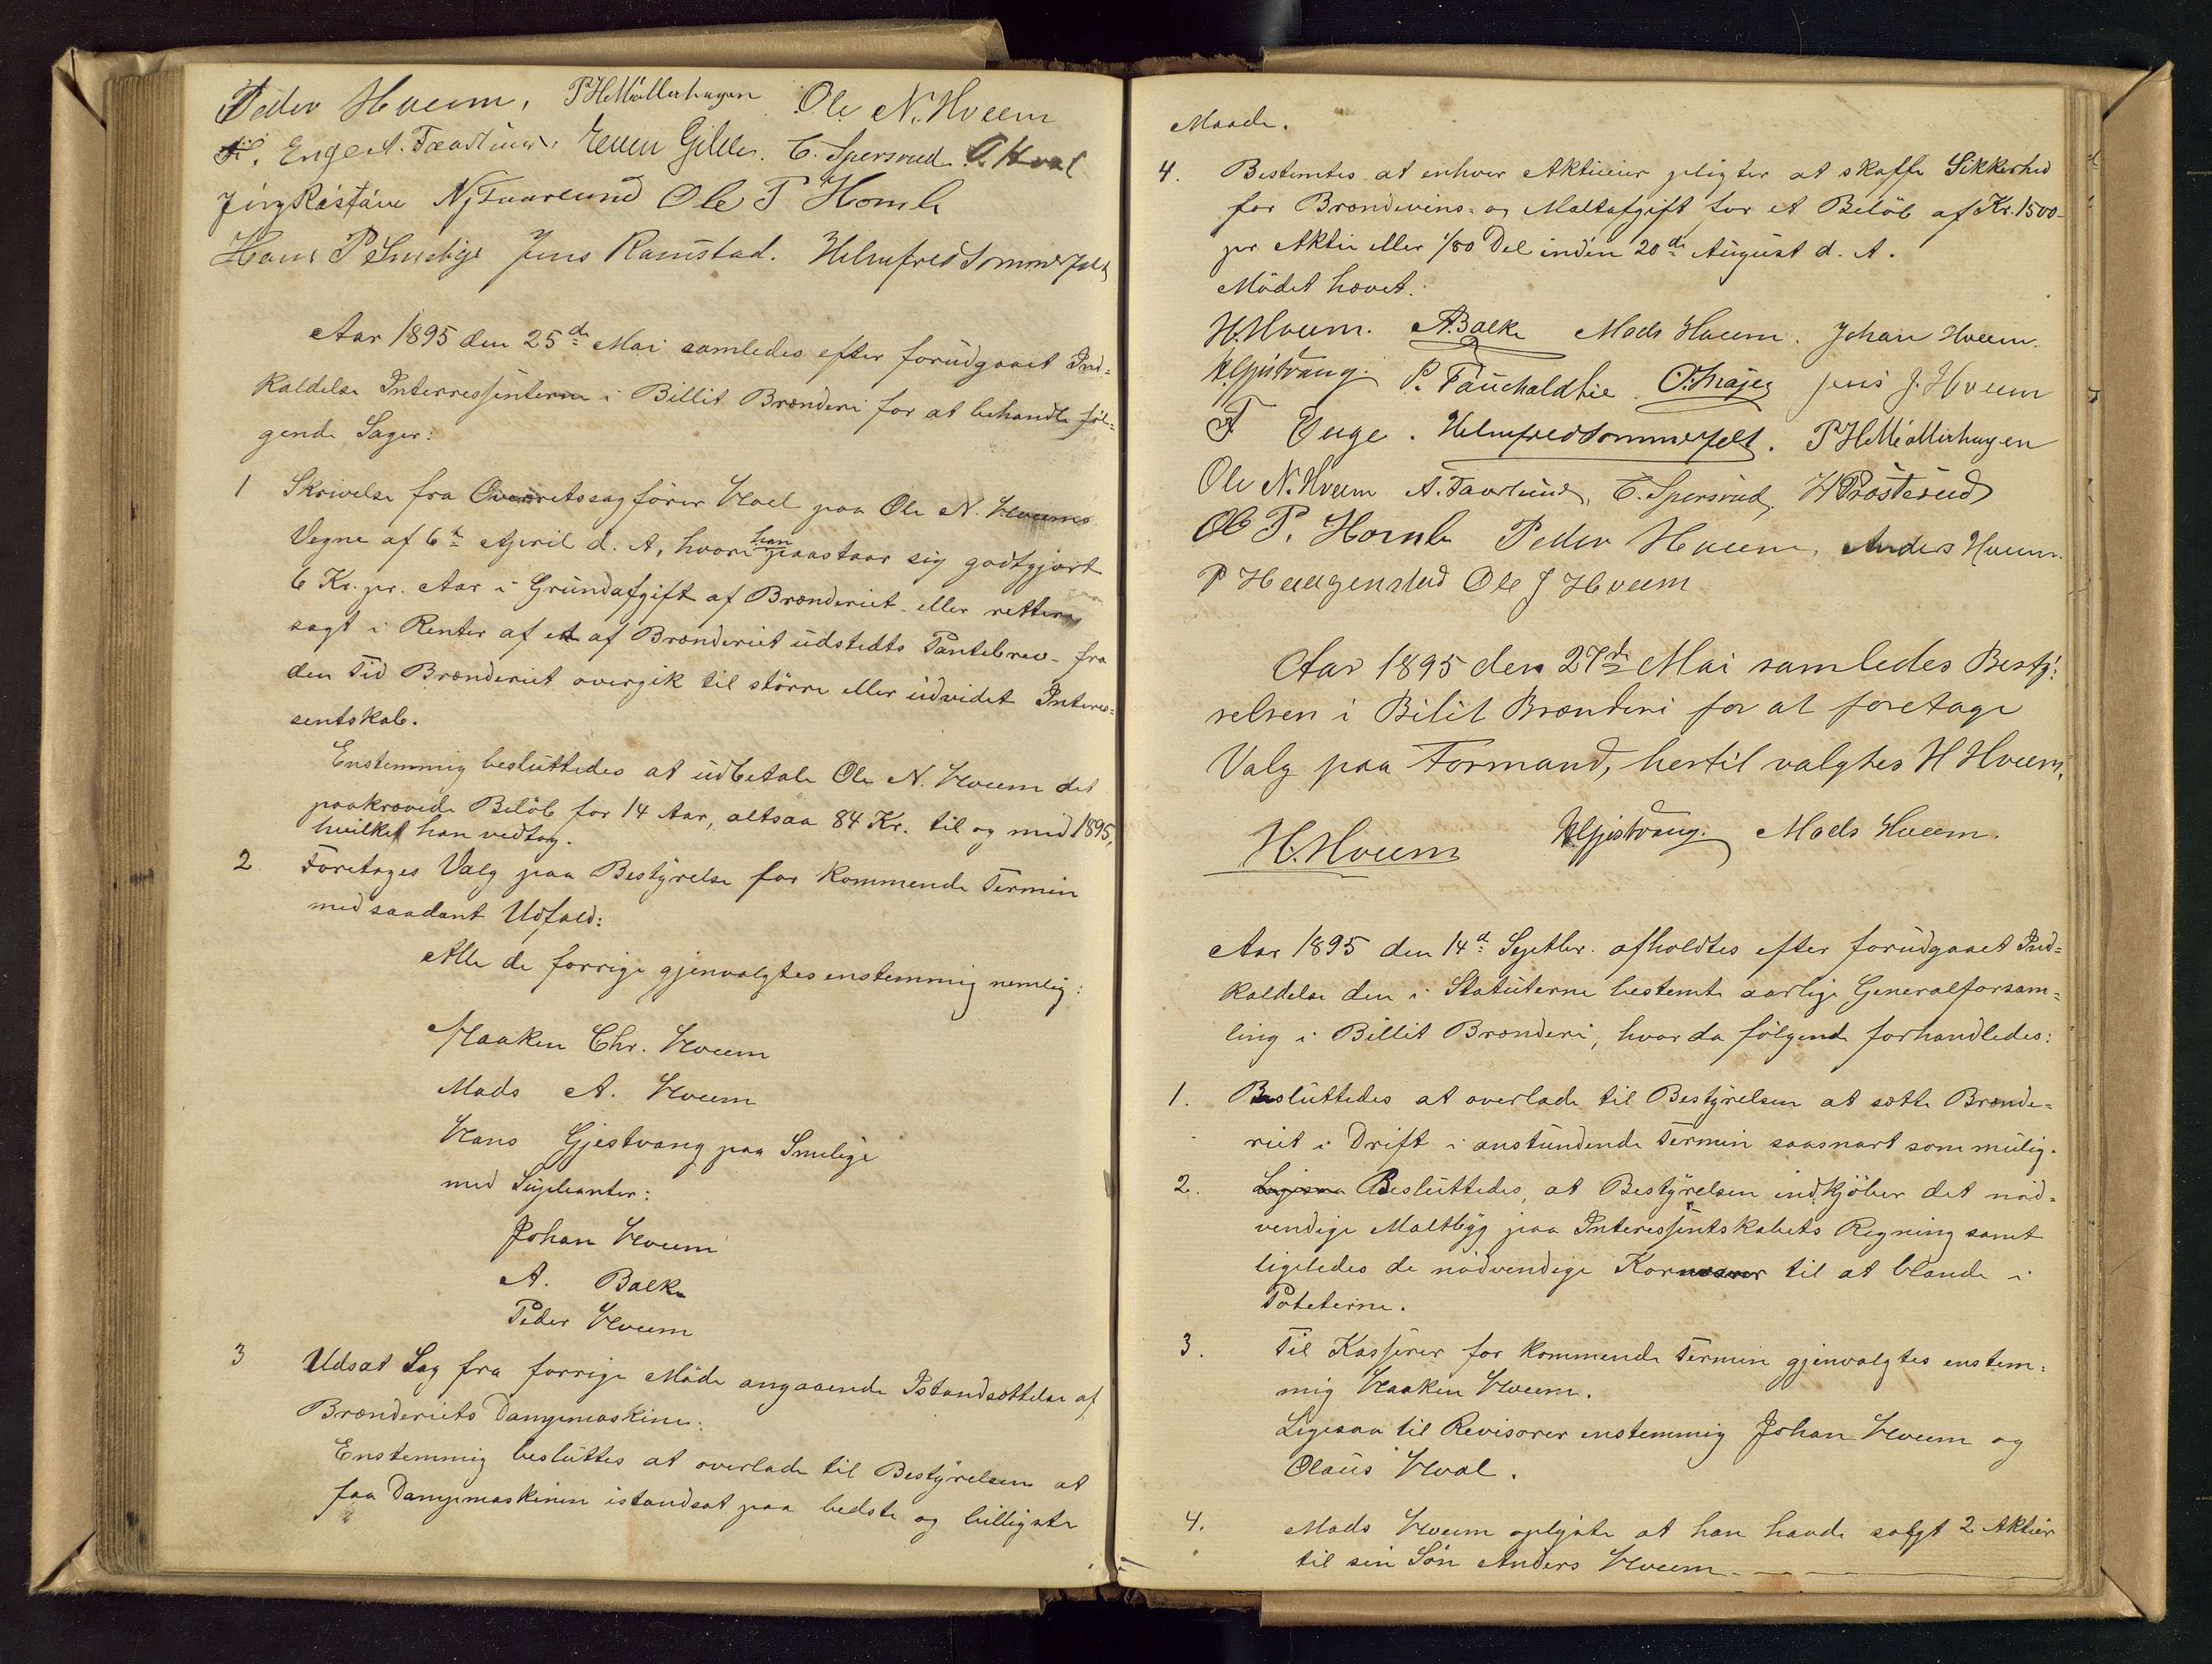 Peder Hveem, P H Møllerhagen Ole N. Hveem
Enge A. Faarlund. Even Gilde. C. Spersrud. O. Hval
N J Faarlund Ole P Homb
Hans P Smebye Jens Ramstad. Helmfred Sommerfelt
Aar 1895 den 25de Mai samledes efter forudgaaet Ind=
kaldelse Interressenterne i Billit Brænderi for at behandle föl=
gende Sager:
1 Skrivelse fra Overretssagförer Hoel paa Ole N. Hveems
Vegne af 6te April d. A, hvori han paastaar sig godtgjort
6 Kr. pr. Aar i Grundafgift af Brænderiet - eller rettere
sagt i Renter af et af Brænderiet udstedts Pantebrev - fra
den Tid Brænderiet overgik til större eller udvidet Interes=
sentskab.
Enstemmig besluttedes at udbetale Ole N. Hveem det
paakrævede Belöb for 14 Aar, altsaa 84 Kr. til og med 1895,
hvilket han vedtog.
2 Foretoges Valg paa Bestyrelse for kommende Termin
med saadant Udfald:
Alle de forrige gjenvalgtes enstemmig nemlig:
Haaken Chr. Hveem
Mads A. Hveem
Hans Gjestvang paa Smebye
med Supleanter:
Johan Hveem
A. Balke
Peder Hveem
3 Udsat Sag fra forrige Möde angaaende Istandsættelse af
Brænderiets Dampmaskine:
Enstemmig besluttes at overlade til Bestyrelsen at
faa Dampmaskinen istandsat paa bedste og billigste
Maade.
4. Bestemtes at enhver Aktieeier pligter at skaffe Sikkerhed
for Brændevins- og Maltafgift for et Belöb af Kr. 1500-
pr Aktie eller 1/80 Del inden 20de August d. A.
Mödet hævet.
H. Hveem. A. Balke Mads Hveem. Johan Hveem.
H. Gjestvang. P. Fauchaldlie. Jens J. Hveem
F Enge. Helmfred Sommerfelt. P H Møllerhagen
Ole N. Hveem A. Faarlund, C. Spersrud, H Prösterud
Ole P. Homb Peder Hveem, Anders Hveem.
P Haugenstad Ole J Hveem
Aar 1895 den 27de Mai samledes Besty:
relsen i Bilit Brænderi for at foretage
Valg paa Formand, hertil valgtes H Hveem,
H. Hveem H. Gjestvang. Mads Hveem.
Aar 1895 den 14de Septbr. afholdtes efter forudgaaet Ind=
kaldelse den i Statuterne bestemte aarlige Generalforsam=
ling i Billit Brænderi, hvor da fölgende forhandledes:
1. Besluttedes at overlade til Bestyrelsen at sætte Brænde=
riet i Drift i anstundende Termin saasnart som mulig.
2. Ligesaa Besluttedes, at Bestyrelsen indkjöber det nöd=
vendige Maltbyg paa Interessentskabets Regning samt
ligeledes de nödvendige Kornvarer til at blande i
Poteterne.
3. Til Kasserer for kommende Termin gjenvalgtes enstem=
mig Haaken Hveem.
Ligesaa til Revisorer enstemmig Johan Hveem og
Olaus Hval.
4. Mads Hveem oplyste at han havde solgt 2 Aktier
til sin Sön Anders Hveem